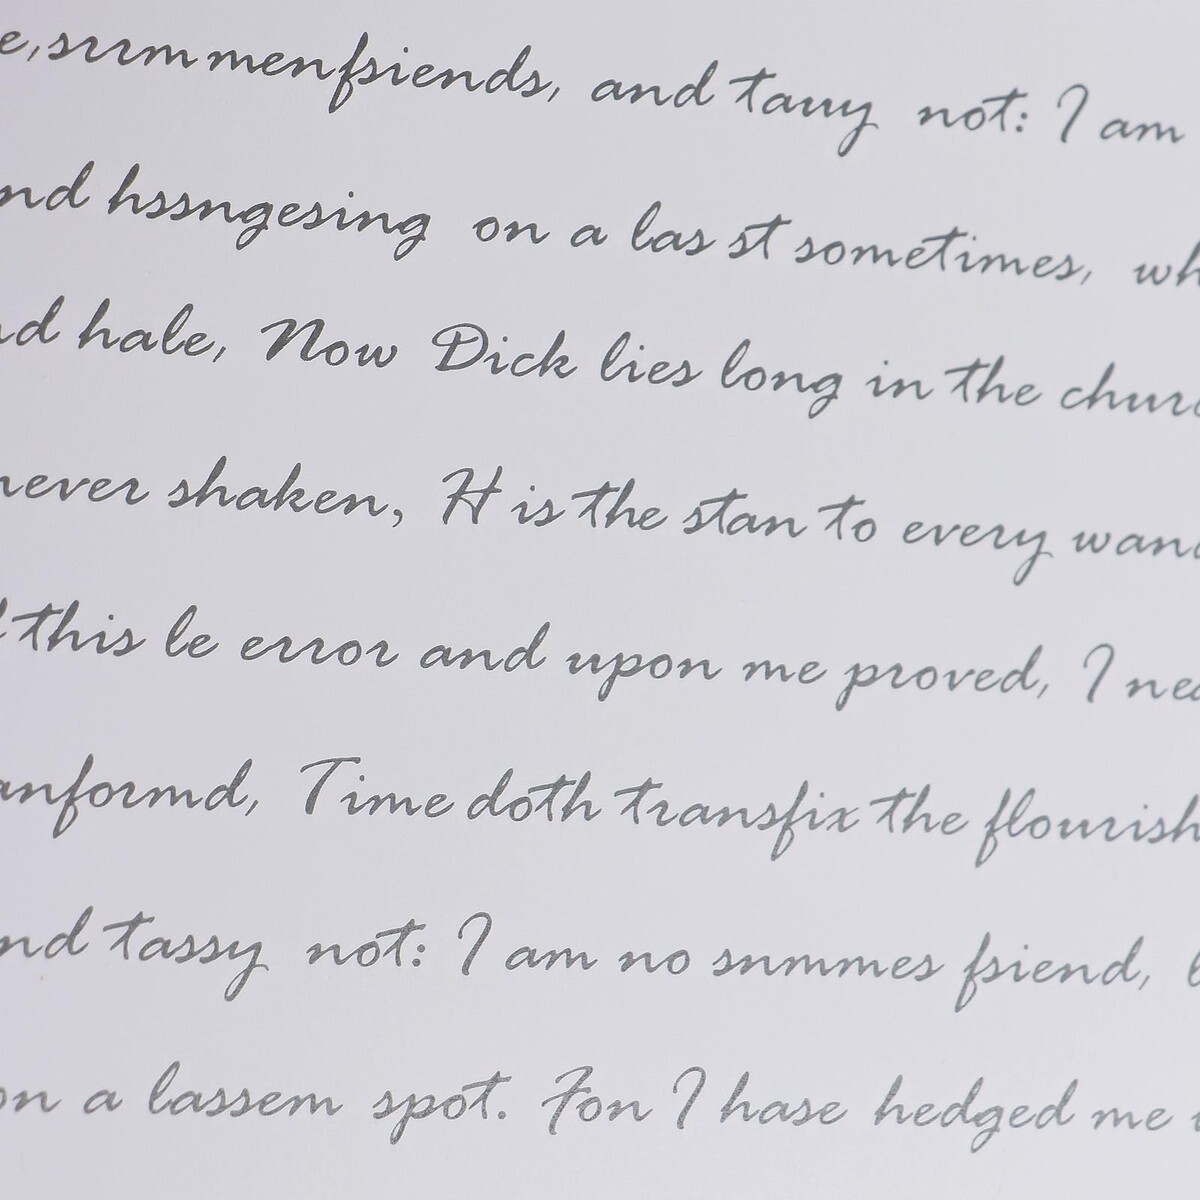 e,summenfsiends, and tauy not: I am
nd hssngesing on a las st sometimes, wh
nd hale, Now Dick lies long in the churc
never shaken, H is the stan to every wand
this le error and upon me proved, I nea
anformd, Time doth transfix the flourish
nd tassy not: I am no snmmes fsiend, l
on a lassem spot. Fon I hase hedged me